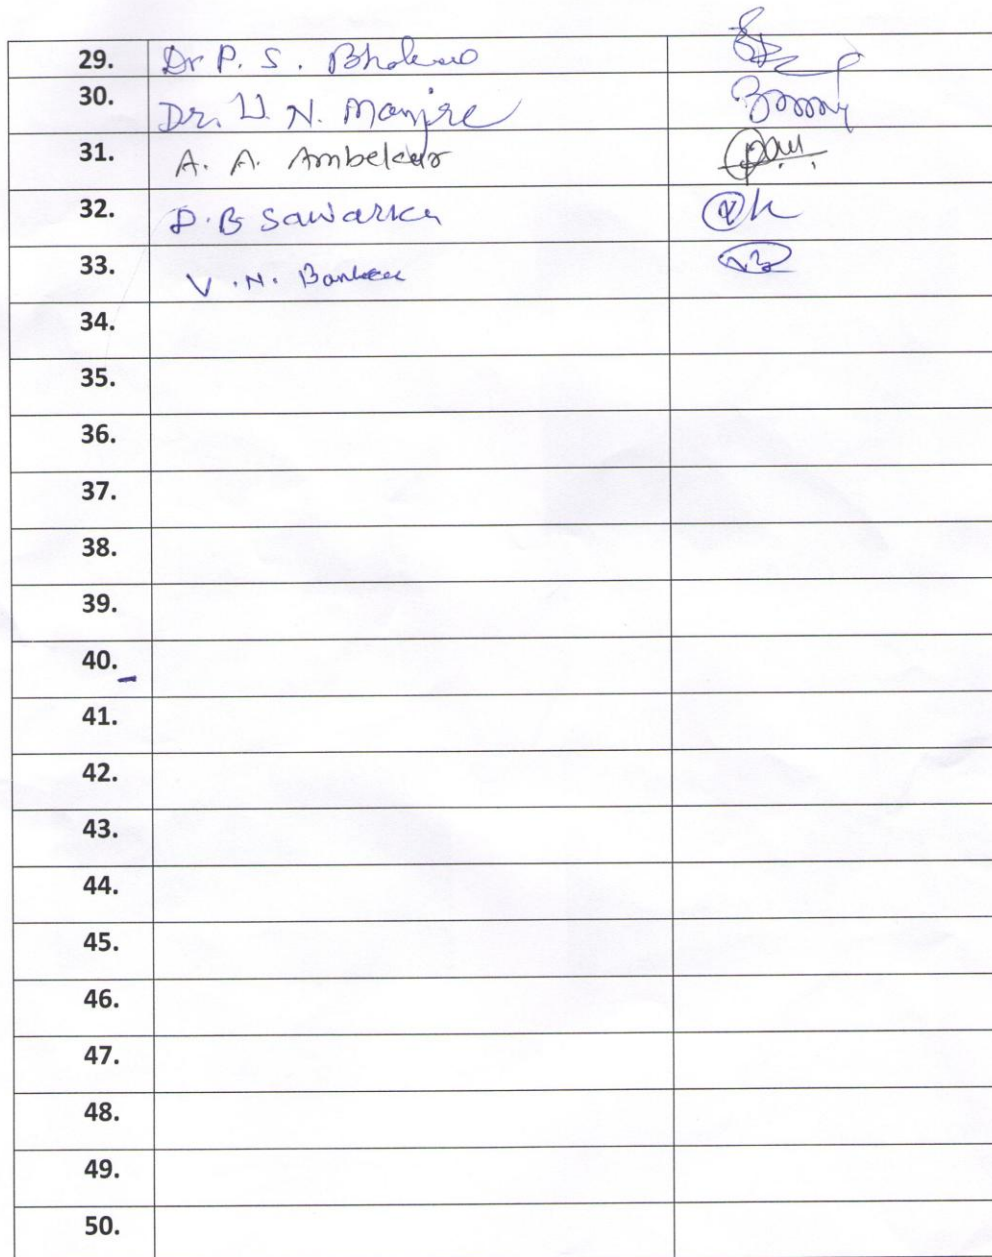 29. Dr P. S.
30. Dr. U. N. Manjre
31. A. A. Ambekar
32. D. B Sawarkar
33. V. N.
34.
35.
36.
37.
38.
39.
40.
41.
42.
43.
44.
45.
46.
47.
48.
49.
50.